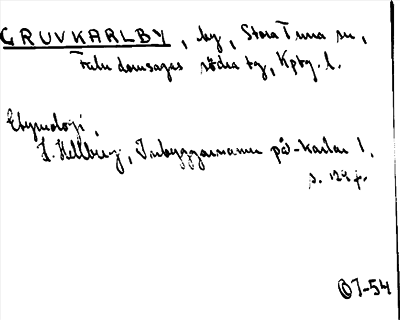 GRUVKARLBY, by, Stora Tuna sn,
Falu domsagas södra tg, Kpbg. l.
Etymologi,
L. Hellberg, Inbyggarnamn på -karlar 1,
s. 124 f.
OJ-54